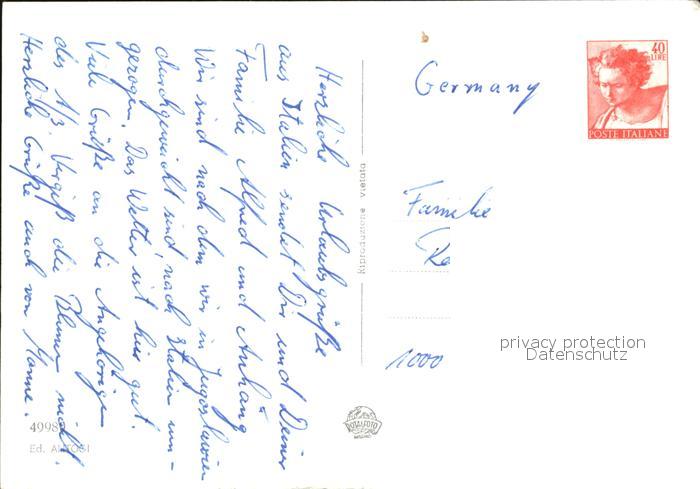 Herzliche Urlaubsgrüße
aus Italien sendet Dir und Deiner
Familie Alfred und Anhang
Wir sind nach dem wir in Jugoslawien
durchgeweicht sind, nach Italien um-
gezogen. Das Wetter ist hier gut.
Viele Grüße an die Angehörigen
des Vergiß die Blumen nicht!
Herzliche Grüße auch von Hanne.
49989
Ed. ALTOSI
Riproduzione vietata
ROTALFOTO
MILANO
Germany
40
LIRE
POSTE ITALIANE
Familie
1000
privacy protection
Datenschutz